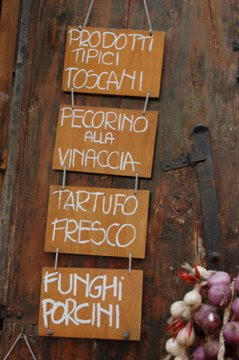 PRODOTTI
TIPICI
TOSCANI
PECORINO
ALLA
VINACCIA
TARTUFO
FRESCO
FUNGHi
PORCINI